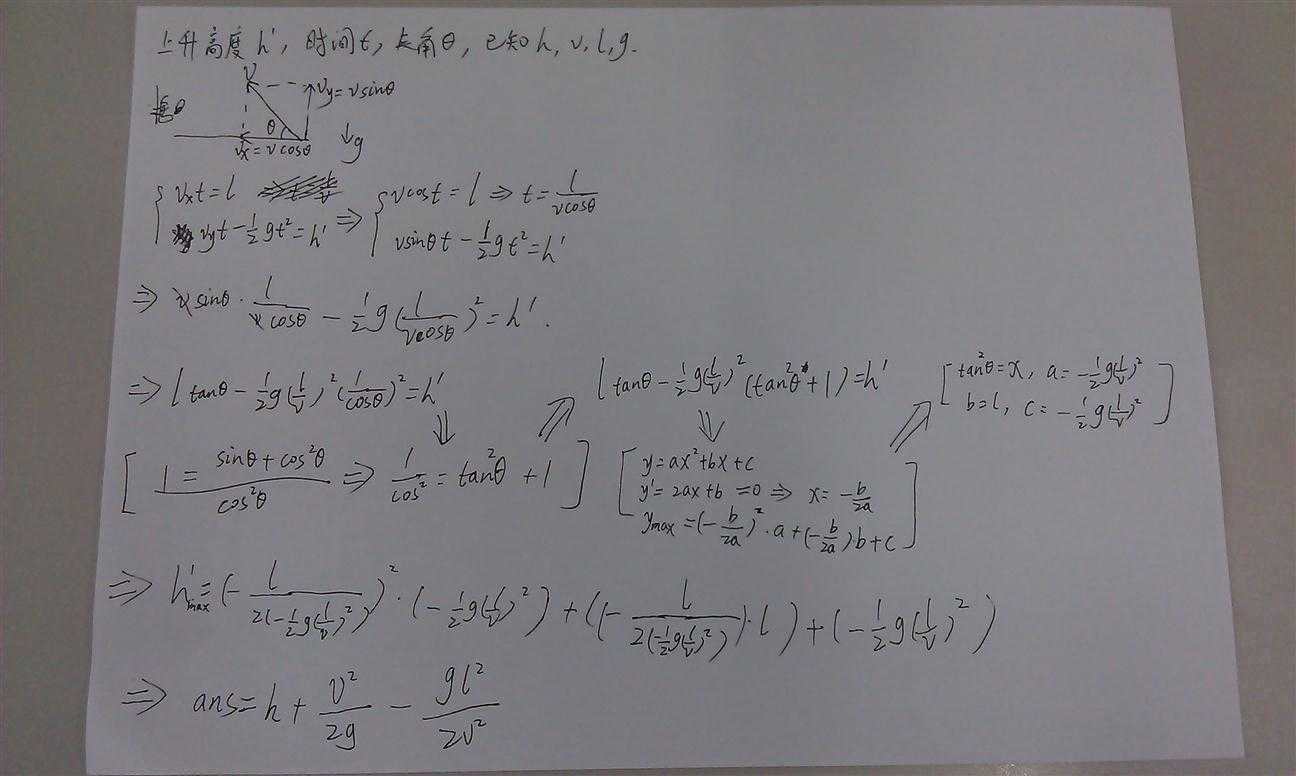 上升高度h', 时间t, 长角θ, 已知h, v, l, g.
V
vy = v sinθ
θ
θ
vx = v cosθ
↓g
{ vxt = l
vyt - 1/2 gt² = h'
⇒ { v cos t = l ⇒ t = l/(v cosθ)
v sinθ t - 1/2 gt² = h'
⇒ v sinθ · l/(v cosθ) - 1/2 g (l/(v cosθ))² = h'.
⇒ l tanθ - 1/2 g(l/v)² (1/cosθ)² = h'
[ 1 = (sinθ + cos²θ)/cos²θ ⇒ 1/cos² = tan²θ + 1 ]
l tanθ - 1/2 g(l/v)² (tan²θ + 1) = h'
[ y = ax² + bx + c
y' = 2ax + b = 0 ⇒ x = -b/2a
ymax = (-b/2a)² · a + (-b/2a) b + c ]
[ tan²θ = x, a = -1/2 g(l/v)²
b = l, c = -1/2 g(l/v)² ]
⇒ h'max = (- l/(2(-1/2 g(l/v)²)))² · (-1/2 g(l/v)²) + ((- l/(2(-1/2 g(l/v)²))) · l) + (-1/2 g(l/v)²)
⇒ ans = h + v²/2g - gl²/2v²